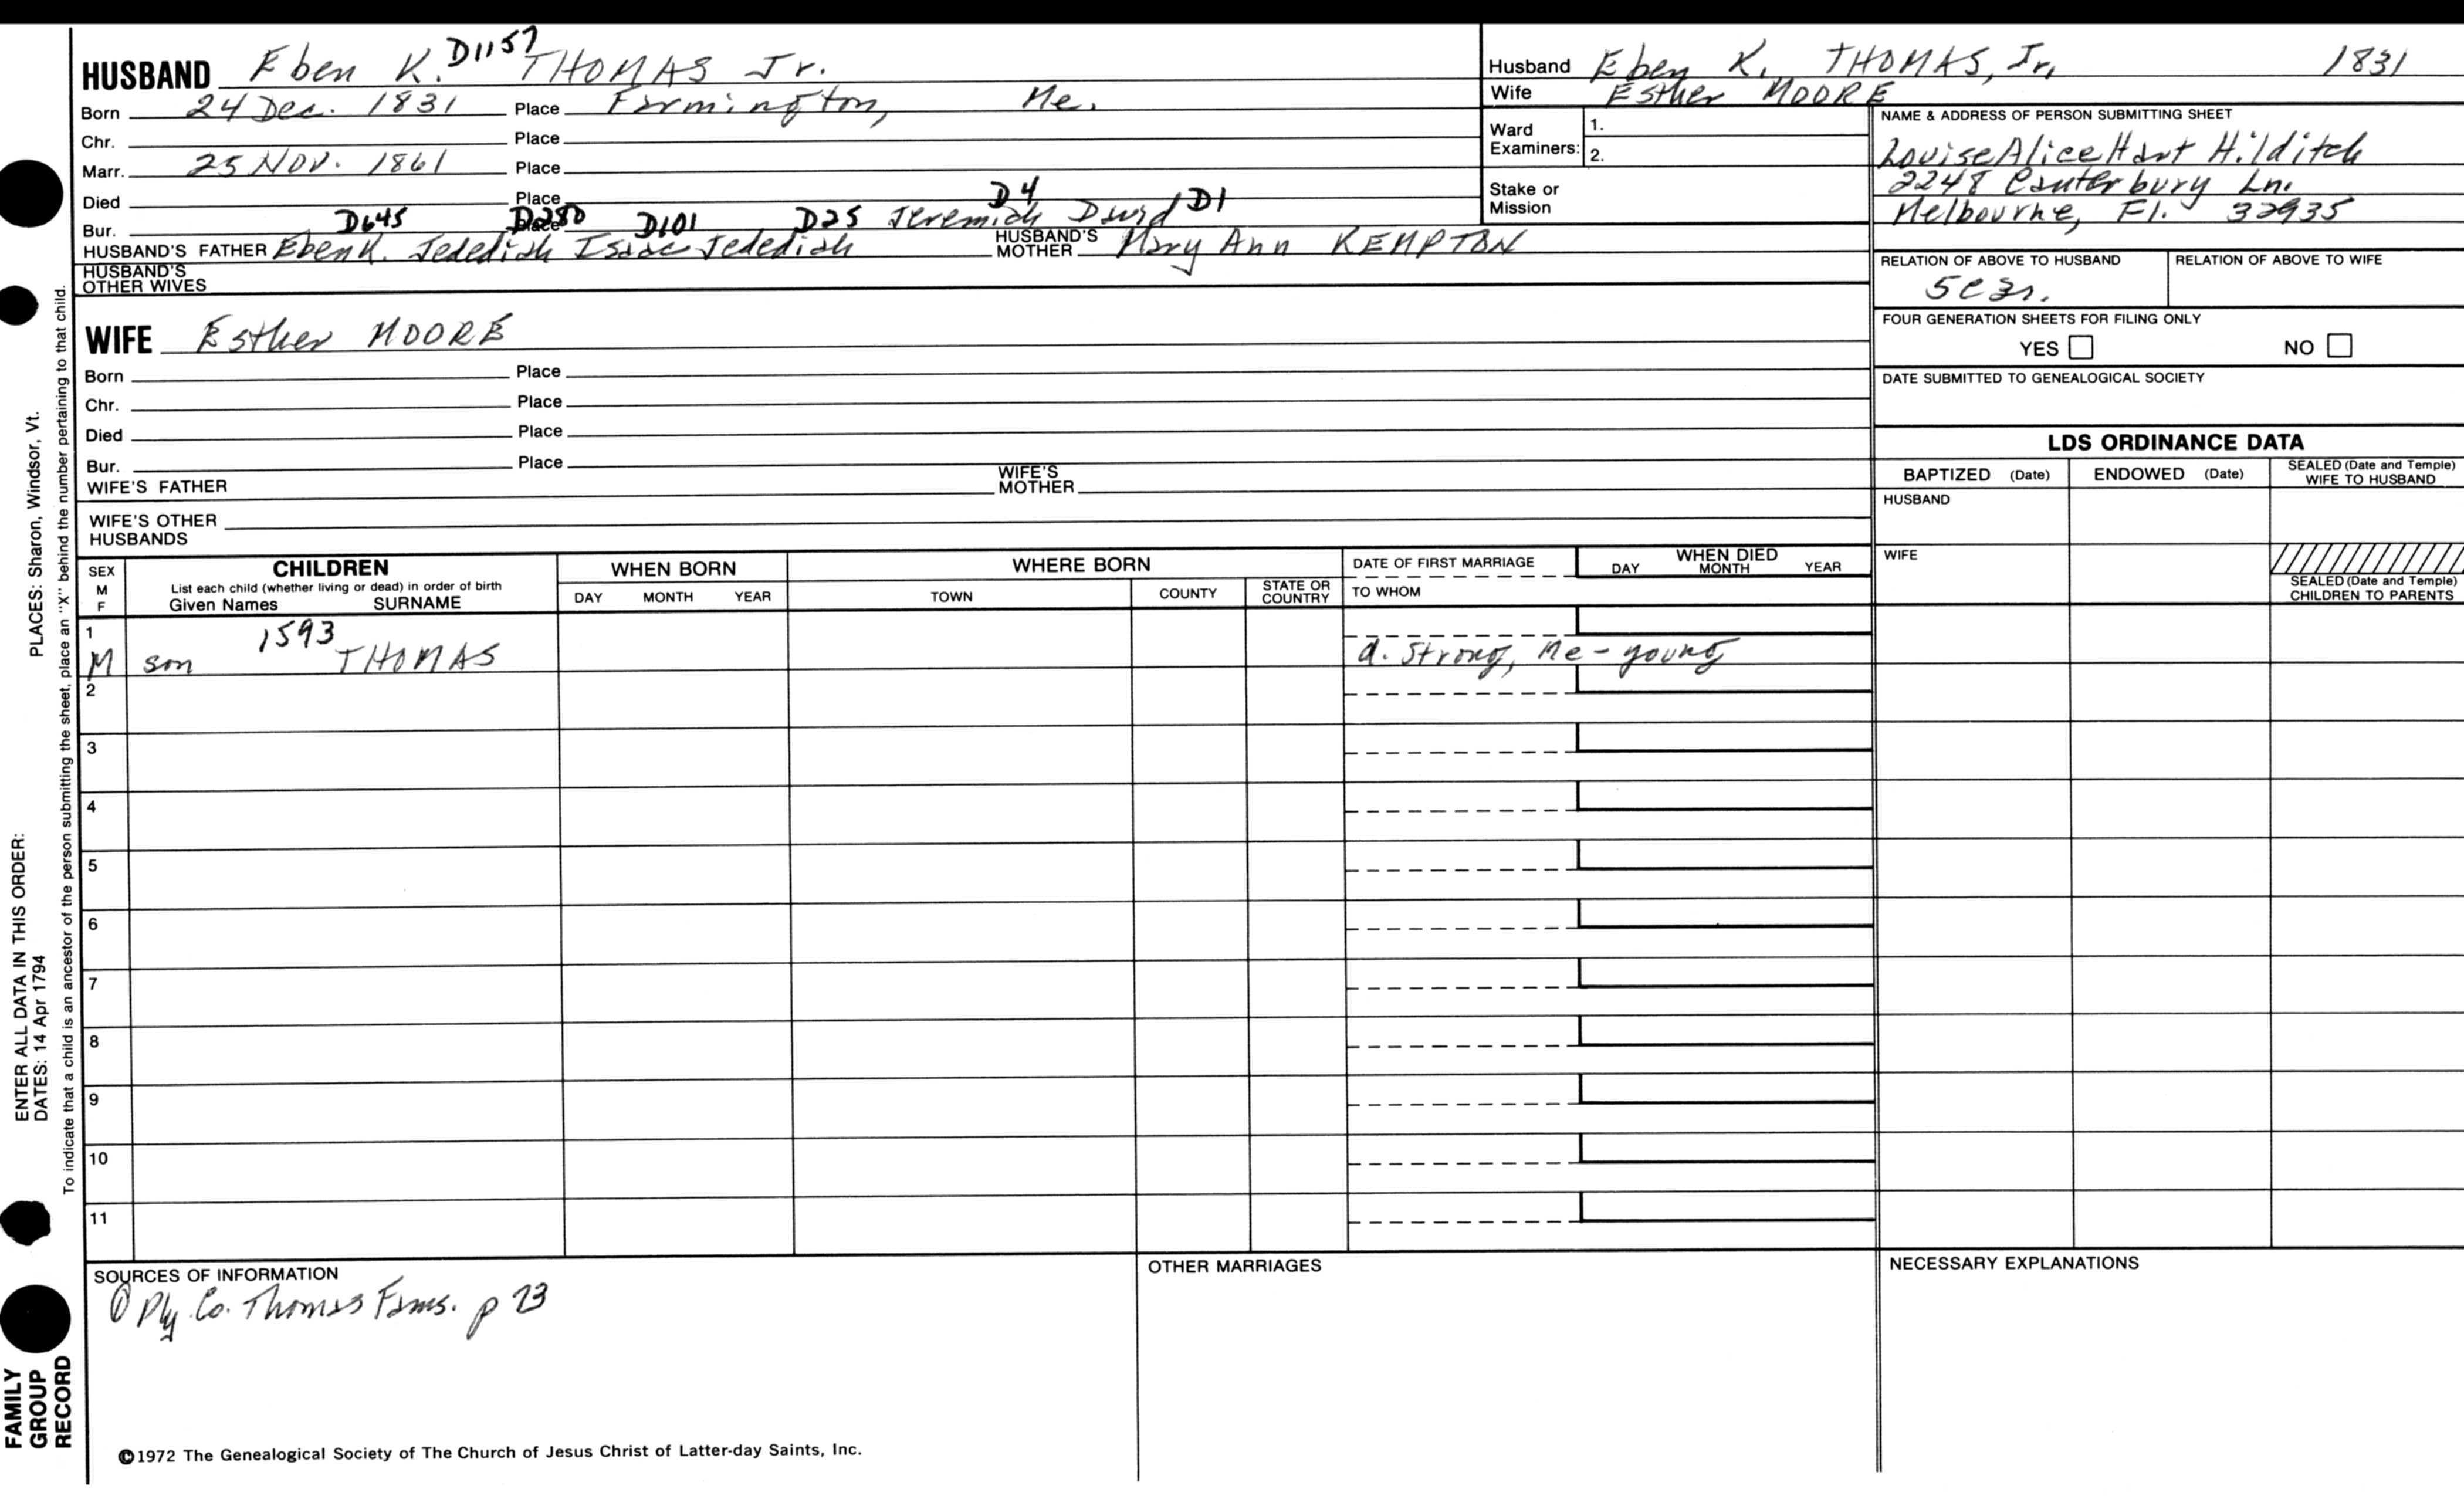 HUSBAND Eben K. D1157 THOMAS Jr.
Born 24 Dec. 1831 Place Farmington, Me.
Chr. Place
Marr. 25 NOV. 1861 Place
Died Place
D645 D280 D101 D25 D4 D1
Bur. Place Jeremiah David
HUSBAND'S FATHER Eben K. Jedediah Isaac Jedediah HUSBAND'S MOTHER Mary Ann KEMPTON
HUSBAND'S OTHER WIVES
WIFE Esther MOORE
Born Place
Chr. Place
Died Place
Bur. Place
WIFE'S FATHER WIFE'S MOTHER
WIFE'S OTHER HUSBANDS
Husband Eben K. THOMAS, Jr. 1831
Wife Esther MOORE
Ward Examiners: 1.
2.
Stake or Mission
NAME & ADDRESS OF PERSON SUBMITTING SHEET
Louise Alice Hart Hilditch
2248 Canterbury Ln.
Melbourne, Fl. 32935
RELATION OF ABOVE TO HUSBAND RELATION OF ABOVE TO WIFE
5c3r.
FOUR GENERATION SHEETS FOR FILING ONLY
YES NO
DATE SUBMITTED TO GENEALOGICAL SOCIETY
LDS ORDINANCE DATA
BAPTIZED (Date) ENDOWED (Date) SEALED (Date and Temple) WIFE TO HUSBAND
HUSBAND
WIFE
SEALED (Date and Temple) CHILDREN TO PARENTS
SEX M F
CHILDREN
List each child (whether living or dead) in order of birth
Given Names SURNAME
WHEN BORN
DAY MONTH YEAR
WHERE BORN
TOWN COUNTY STATE OR COUNTRY
DATE OF FIRST MARRIAGE
TO WHOM
WHEN DIED
DAY MONTH YEAR
1 1593
M son THOMAS d. Strong, Me - young
2
3
4
5
6
7
8
9
10
11
SOURCES OF INFORMATION
① Ply. Co. Thomas Fams. p 73
OTHER MARRIAGES
NECESSARY EXPLANATIONS
©1972 The Genealogical Society of The Church of Jesus Christ of Latter-day Saints, Inc.
FAMILY
GROUP
RECORD
ENTER ALL DATA IN THIS ORDER:
DATES: 14 Apr 1794
PLACES: Sharon, Windsor, Vt.
To indicate that a child is an ancestor of the person submitting the sheet, place an "X" behind the number pertaining to that child.